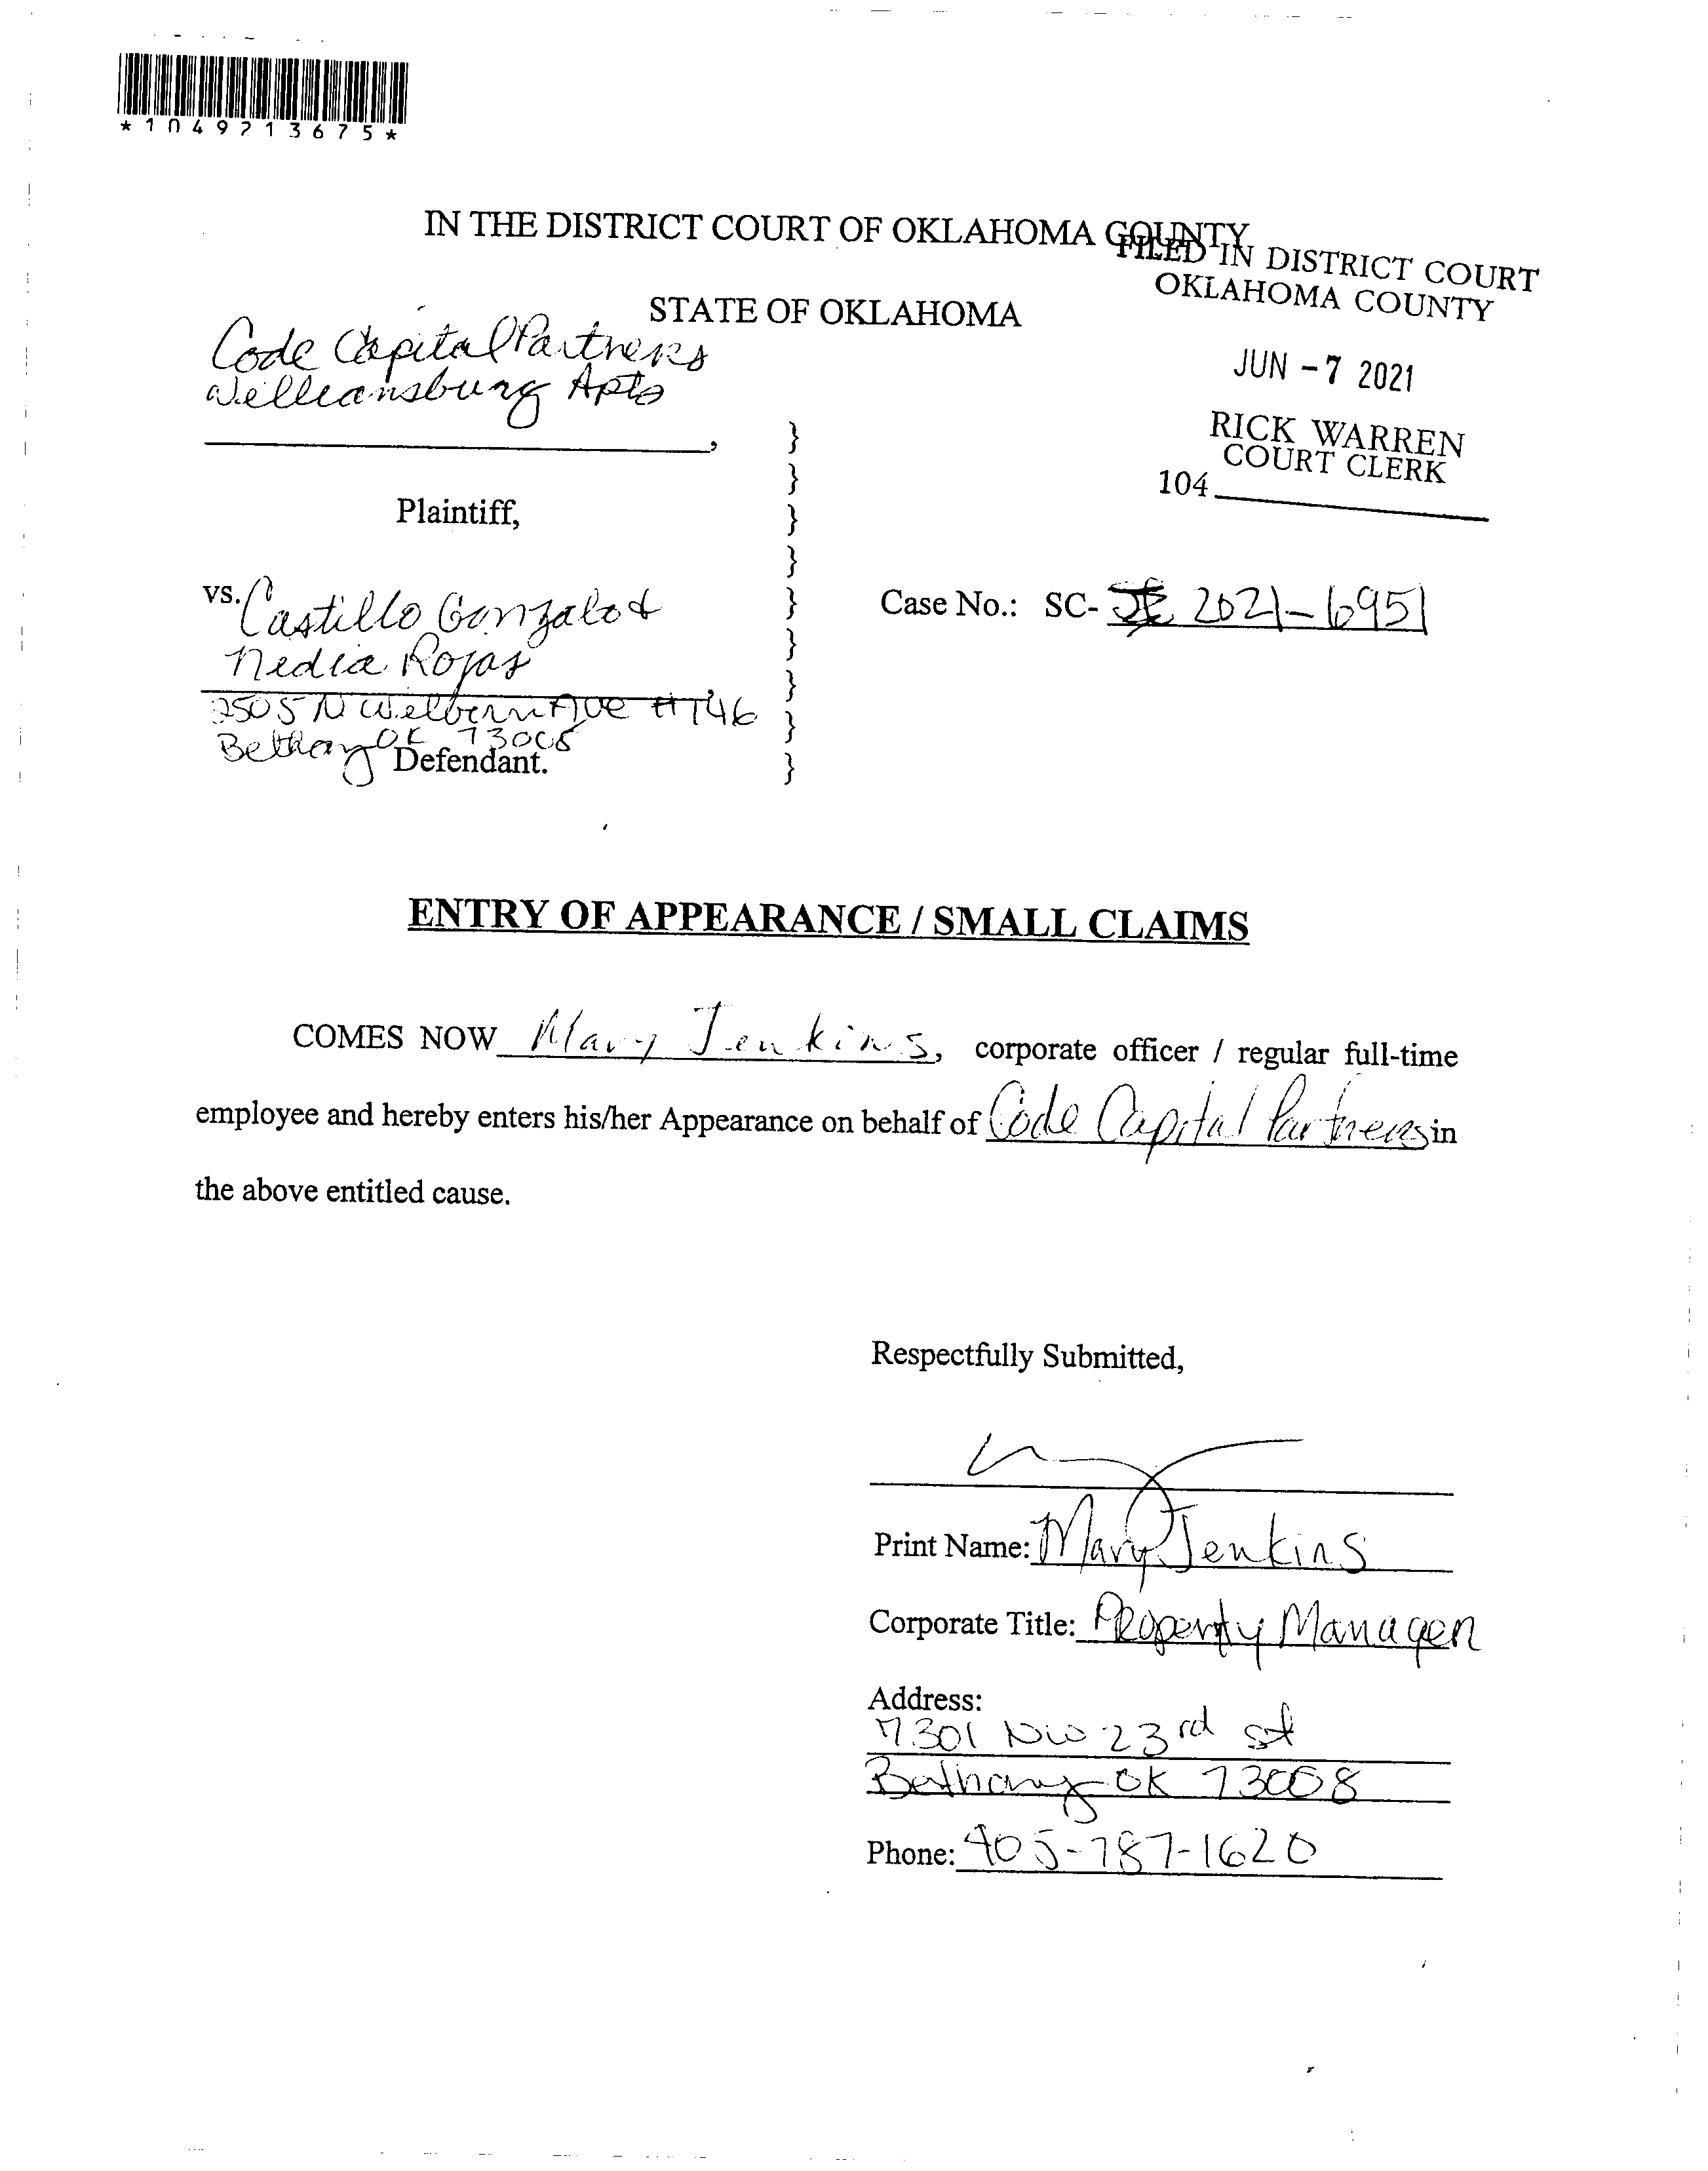 *1049213675*
IN THE DISTRICT COURT OF OKLAHOMA COUNTY
FILED IN DISTRICT COURT
OKLAHOMA COUNTY
STATE OF OKLAHOMA
JUN -7 2021
RICK WARREN
COURT CLERK
104
Code Capital Partners
Williamsburg Apts
,
Plaintiff,
vs. Castillo Gonzalo &
Nedia Rojas
2505 N Welbern Ave #T46
Bethany OK 73008
Defendant.
}
}
}
}
}
}
}
}
}
Case No.: SC- 2021-6951
ENTRY OF APPEARANCE / SMALL CLAIMS
COMES NOW Mary Jenkins, corporate officer / regular full-time
employee and hereby enters his/her Appearance on behalf of Code Capital Partners in
the above entitled cause.
Respectfully Submitted,
Print Name: Mary Jenkins
Corporate Title: Property Manager
Address:
7301 NW 23rd st
Bethany OK 73008
Phone: 405-787-1620